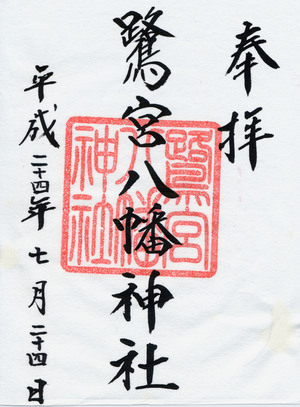 奉拝
鷺宮八幡神社
鷺宮八幡神社
平成二十四年七月二十四日